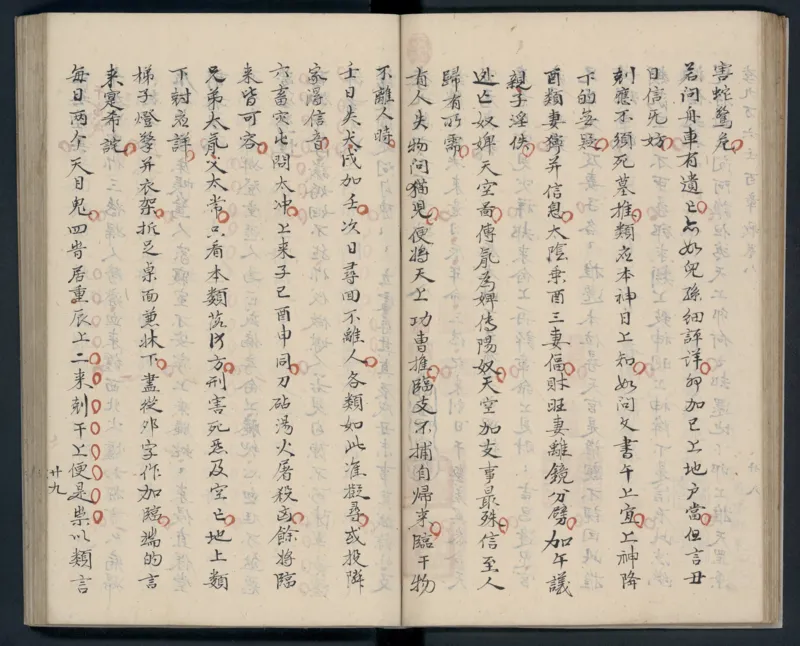 害蛇驚危
若問舟車有遺亡亦如兒孫細詳詳卯加巳上地戶當但言丑
日信无妨
刻應不須死墓推類在本神日上知如問文書午上宜上神降
下的無疑
酉類妻婢并信息太陰乗酉三妻偪財旺妻離鏡分劈加午議
親子淫佚
逃亡奴婢天空當傳氣為婢傳陽奴天空加支事最殊信至人
歸有所需
有人失物問猫兒便將天上功曹推臨支不捕自歸來臨干物
不離人時
壬日失犬戌加壬次日尋回不離人各類如此准擬尋或投隣
家得信音
六畜灾屯問太冲上来子巳酉申同刀砧湯火屠殺凶餘將臨
来皆可容
兄弟太氣父太常只看本類落何方刑害死悪及空亡地上類
下対在詳
梯子燈擎并衣架折足桌面兼牀下盡從外字作加臨端的言
来寔希詫
每日两个天日鬼四時居重辰上二来刺干上便是祟以類言
廿九